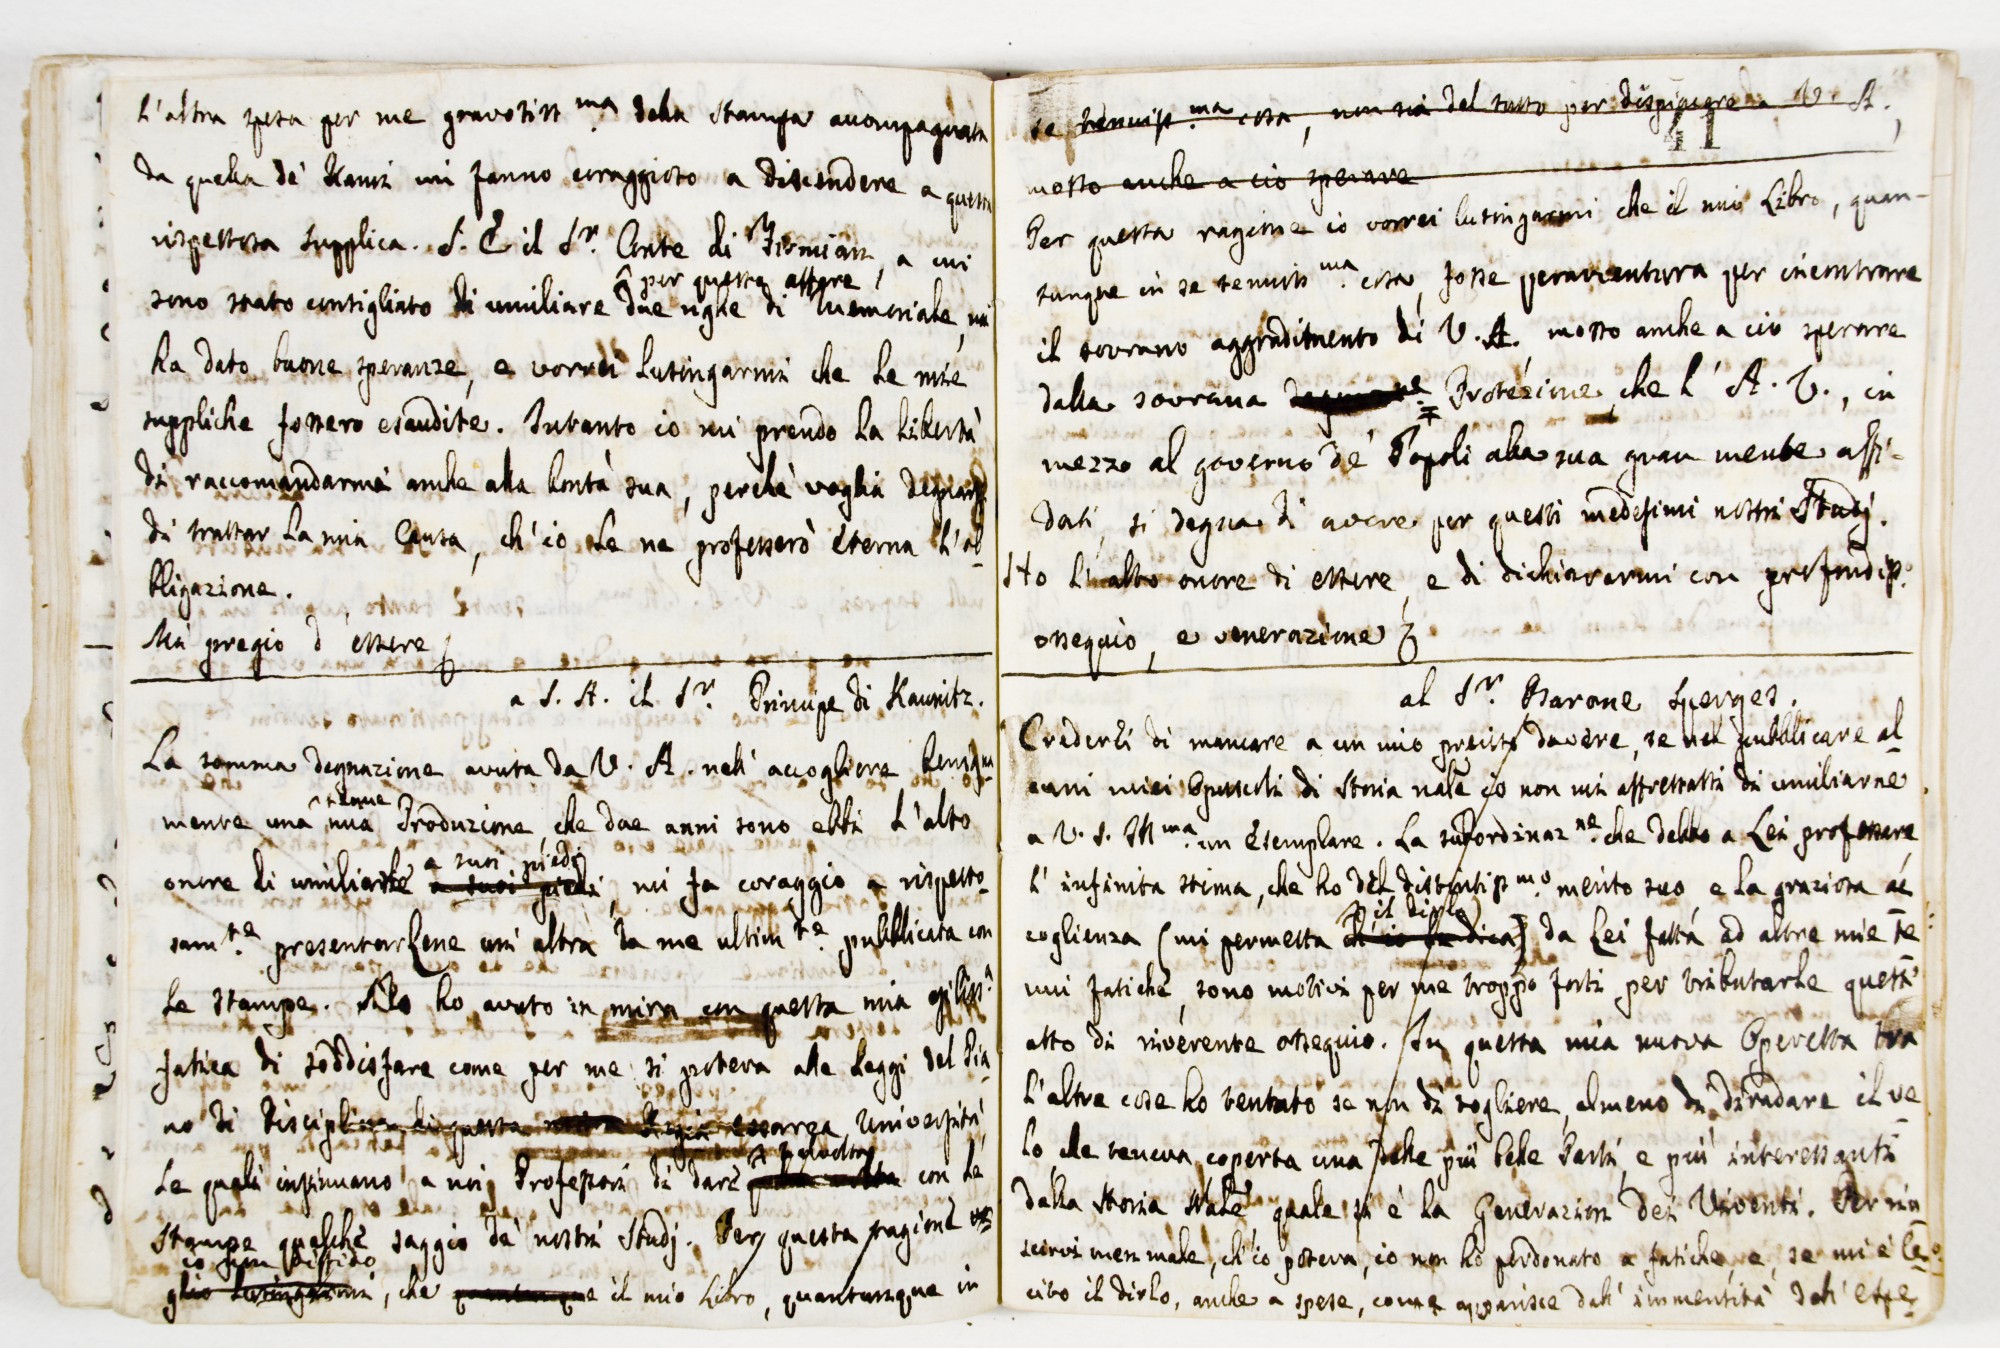 L'altra spesa per me gravosiss.ma della stampa accompagnata
da quella de' Rami mi fanno coraggioso a discendere a questa
rispettosa supplica. S. E. il Sr. Conte di Firmian, a cui
per questo affare
sono stato consigliato di umiliare due righe di memoriale, mi
ha dato buone speranze, e vorrei lusingarmi che le mie
suppliche fossero esaudite. Intanto io mi prendo la libertà
di raccomandarmi anche alla bontà sua, perchè voglia degnarsi
di trattar la mia Causa, ch'io le ne professerò eterna l'ob-
bligazione.
Mi pregio d'essere
a S. A. il Sr. Principe di Kaunitz.
La somma degnazione avuta da V. A. nell'accogliere benigna
tenue
mente una mia Produzione, che due anni sono ebbi l'alto
a suoi piedi
onore di umiliarle a suoi piedi, mi fa coraggio a rispetto-
sam.te presentarLene un'altra da me ultim.te pubblicata con
le stampe. Ho avuto in mira con questa mia
fatica di soddisfare come per me si poteva alle Leggi del Pia-
no di disciplina di questa Regia Università,
talvolta
le quali insinuano a noi Professori di dare con le
stampe qualche saggio de' nostri Studj. Per questa ragione
io non diffido
lusingarmi, che quantunque il mio Libro, quantunque in
41
se tenuiss.ma cosa, non sia del tutto per dispiacere a V. A.,
mosso anche a ciò sperare
Per questa ragione io vorrei lusingarmi che il mio Libro, quan-
tunque in se tenuiss.ma cosa, fosse peravventura per incontrare
il sovrano aggradimento di V. A. mosso anche a ciò sperare
dalla sovrana Protezione che l'A. V., in
mezzo al governo de' Popoli alla sua gran mente affi-
dati, si degna di avere per questi medesimi nostri Studj.
Ho l'alto onore di essere, e di dichiararmi con profondiss.o
ossequio, e venerazione
al Sr. Barone Sperges.
Crederei di mancare a un mio preciso dovere, se nel pubblicare al-
cuni miei Opuscoli di Storia nale io non mi affrettassi di umiliarne
a V. S. Ill.ma un Esemplare. La subordinaz.ne che debbo a Lei professare,
l'infinita stima, che ho del distintiss.mo merito suo, e la graziosa ac-
il dirlo
coglienza (mi permetta ch'io la dica) da Lei fatta ad altre mie te-
nui fatiche, sono motivi per me troppo forti per tributarle quest'
atto di riverente ossequio. In questa mia nuova Operetta tra
l'altre cose ho tentato se non di togliere, almeno di diradare il ve-
lo, che teneva coperta una delle più belle Parti, e più interessanti
della Storia Nale, quale si è la Generazion dei Viventi. Per riu-
scirvi men male, ch'io poteva, io non ho perdonato a fatiche, e, se mi è le-
cito il dirlo, anche a spese, come apparisce dall'immensità dell'espe-